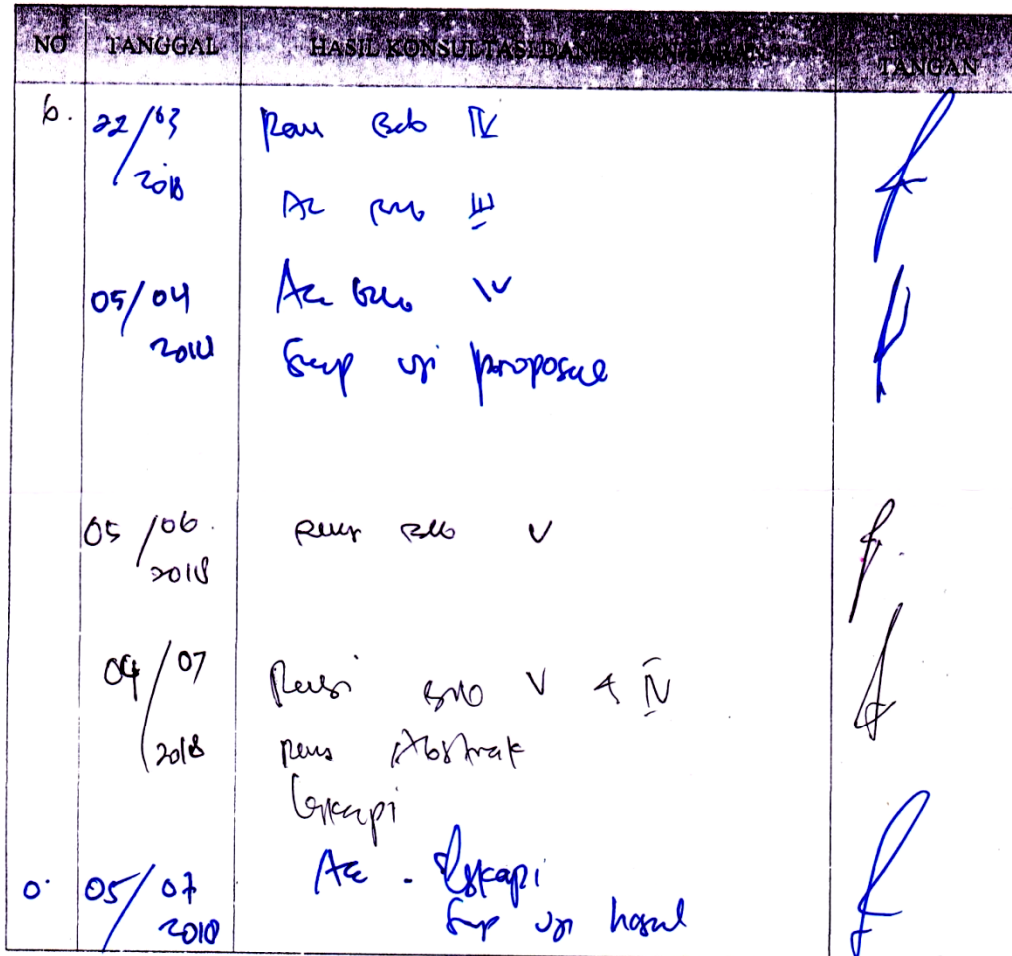 NO TANGGAL HASIL KONSULTASI DAN SARAN TANDA TANGAN
6. 22/03 2018 Bab IV
Acc Bab III
05/04 2018 Acc Bab IV
Siap uji proposal
05/06 2018 Bab V
04/07 2018 Revisi Bab V & IV
Abstrak
Lengkapi
05/07 2018 Acc - Lengkapi
Siap uji hasil